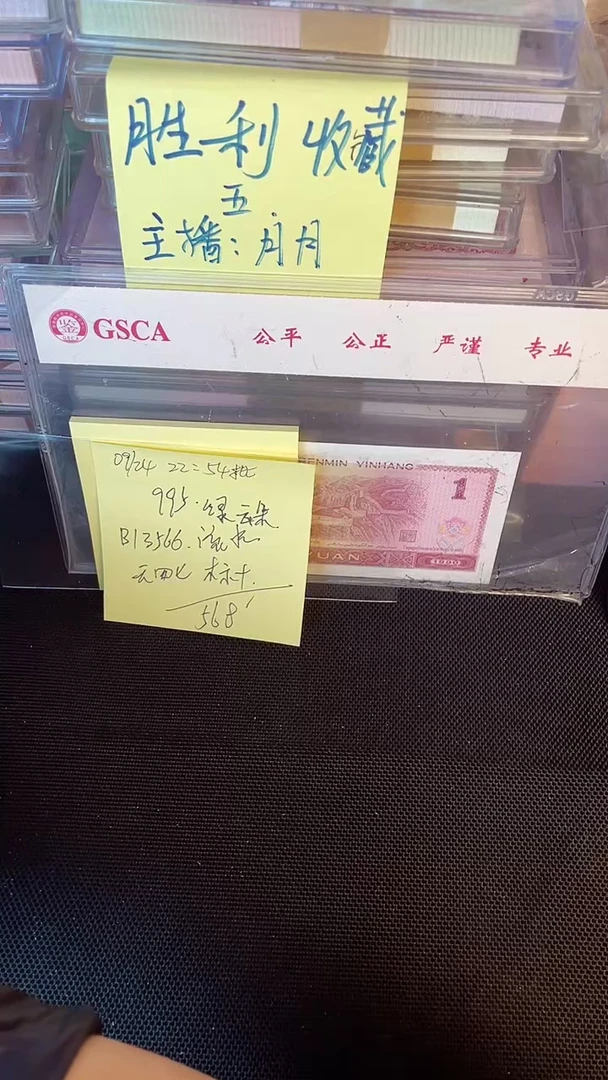 胜利收藏
五
主播:月月
GSCA 公平 公正 严谨 专业
RENMIN YINHANG
1
YUAN
1990
09/24 22:54拍
995.绿云朵
B13566.
无四七 标十.
568